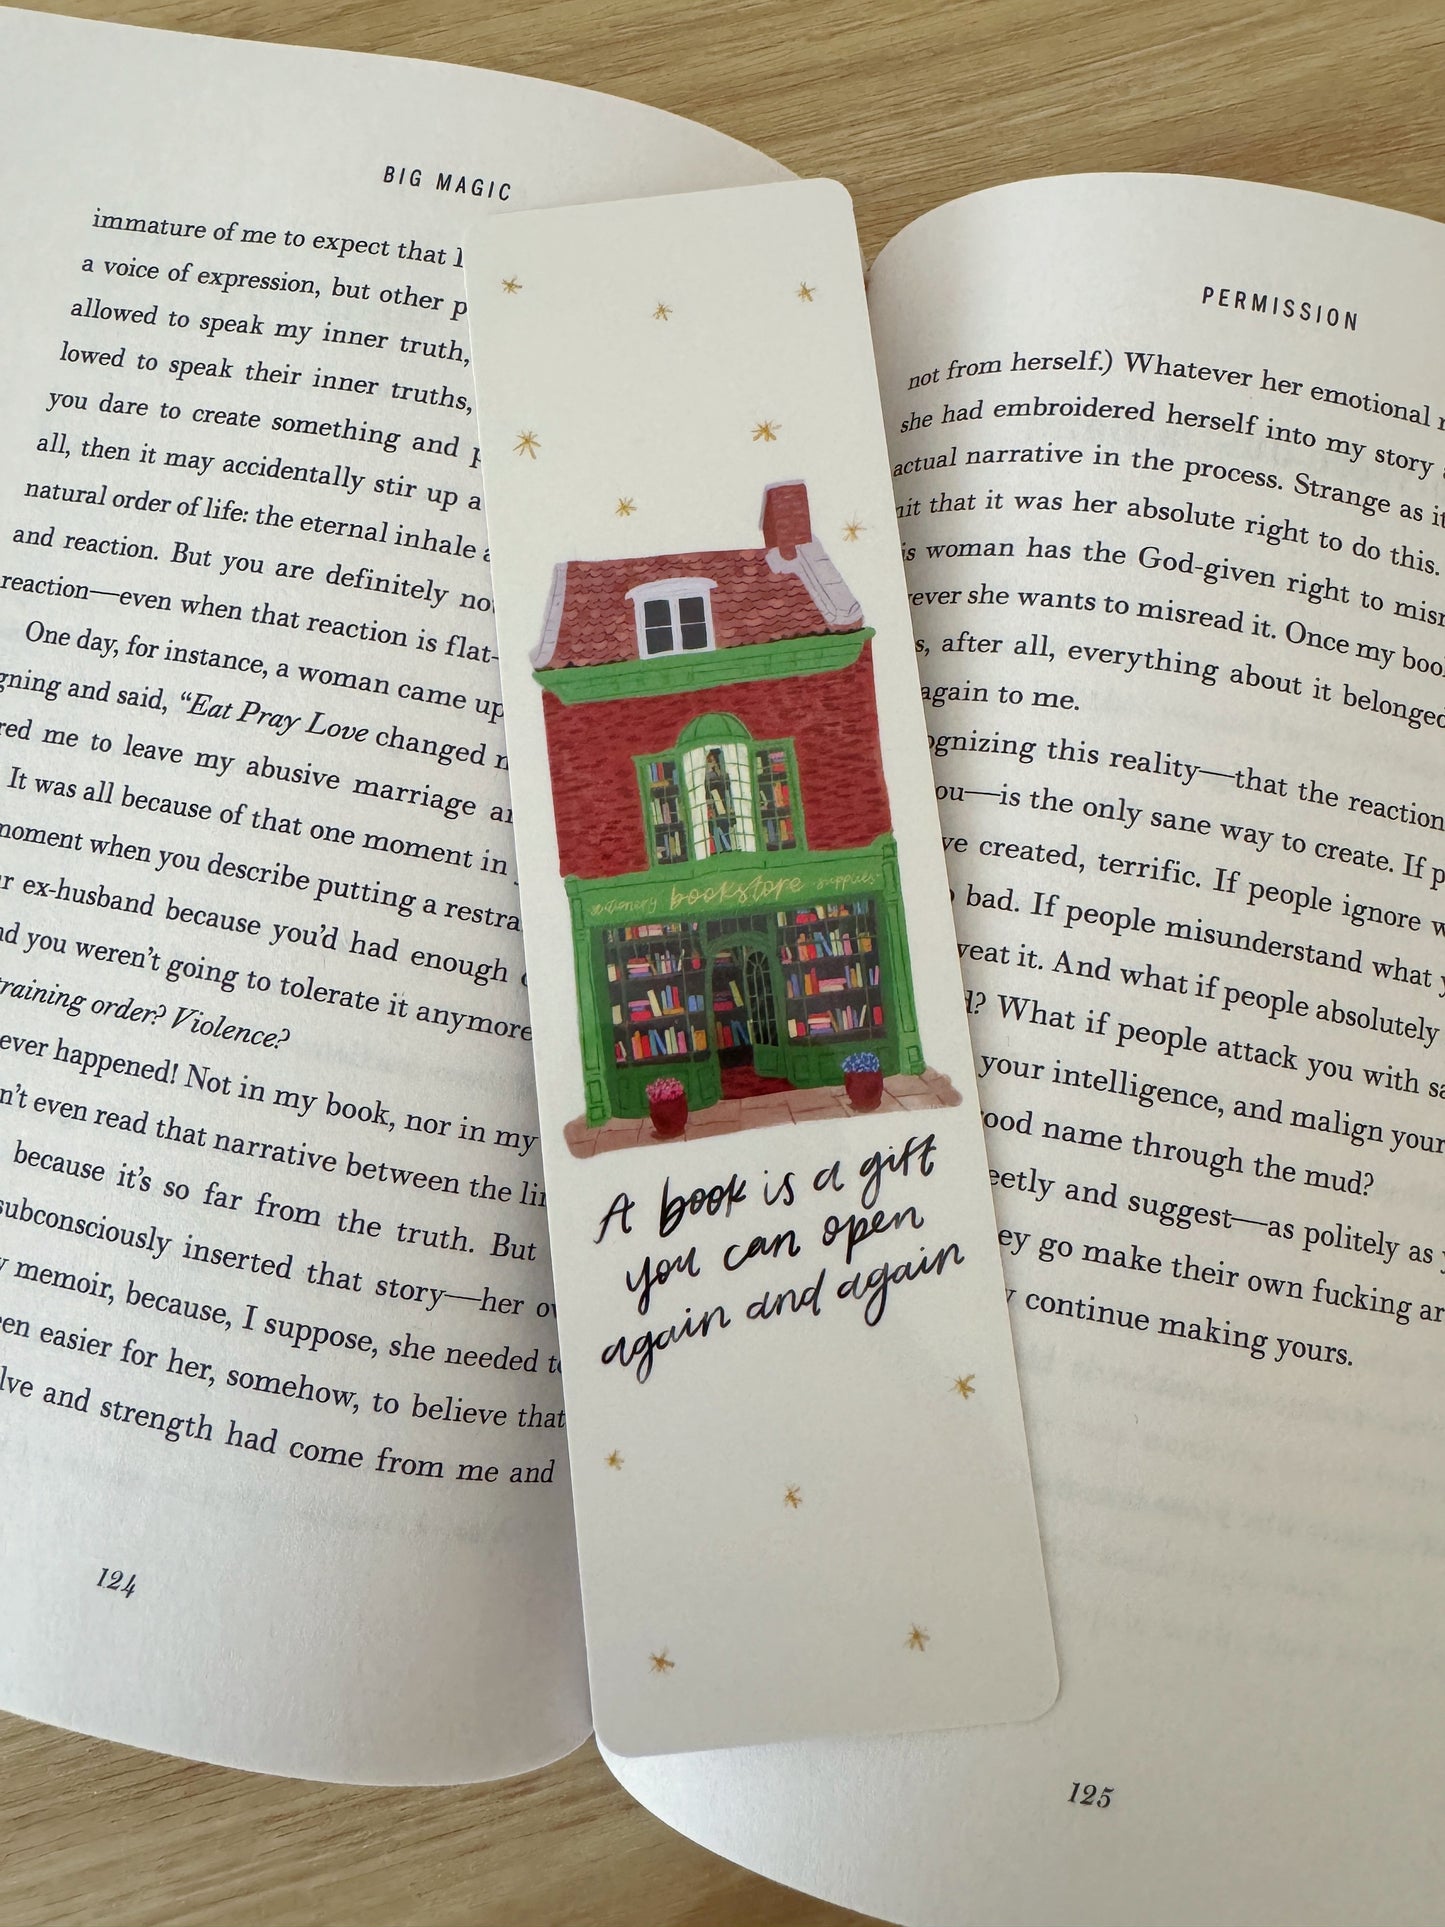 BIG MAGIC
immature of me to expect that I
a voice of expression, but other p
allowed to speak my inner truth,
lowed to speak their inner truths,
you dare to create something and p
all, then it may accidentally stir up a
natural order of life: the eternal inhale a
and reaction. But you are definitely no
reaction—even when that reaction is flat-
One day, for instance, a woman came up
gning and said, “Eat Pray Love changed m
red me to leave my abusive marriage an
It was all because of that one moment in
moment when you describe putting a restra
r ex-husband because you’d had enough
nd you weren’t going to tolerate it anymore
training order? Violence?
ever happened! Not in my book, nor in my
n’t even read that narrative between the lin
because it’s so far from the truth. But
subconsciously inserted that story—her ow
y memoir, because, I suppose, she needed to
een easier for her, somehow, to believe that
lve and strength had come from me and
124
stationery bookstore supplies
A book is a gift
you can open
again and again
PERMISSION
not from herself.) Whatever her emotional r
she had embroidered herself into my story
actual narrative in the process. Strange as it
nit that it was her absolute right to do this.
is woman has the God-given right to misr
ever she wants to misread it. Once my boo
s, after all, everything about it belonged
again to me.
ognizing this reality—that the reaction
ou—is the only sane way to create. If p
ve created, terrific. If people ignore w
bad. If people misunderstand what y
weat it. And what if people absolutely
d? What if people attack you with sa
your intelligence, and malign your
ood name through the mud?
eetly and suggest—as politely as y
ey go make their own fucking ar
y continue making yours.
125